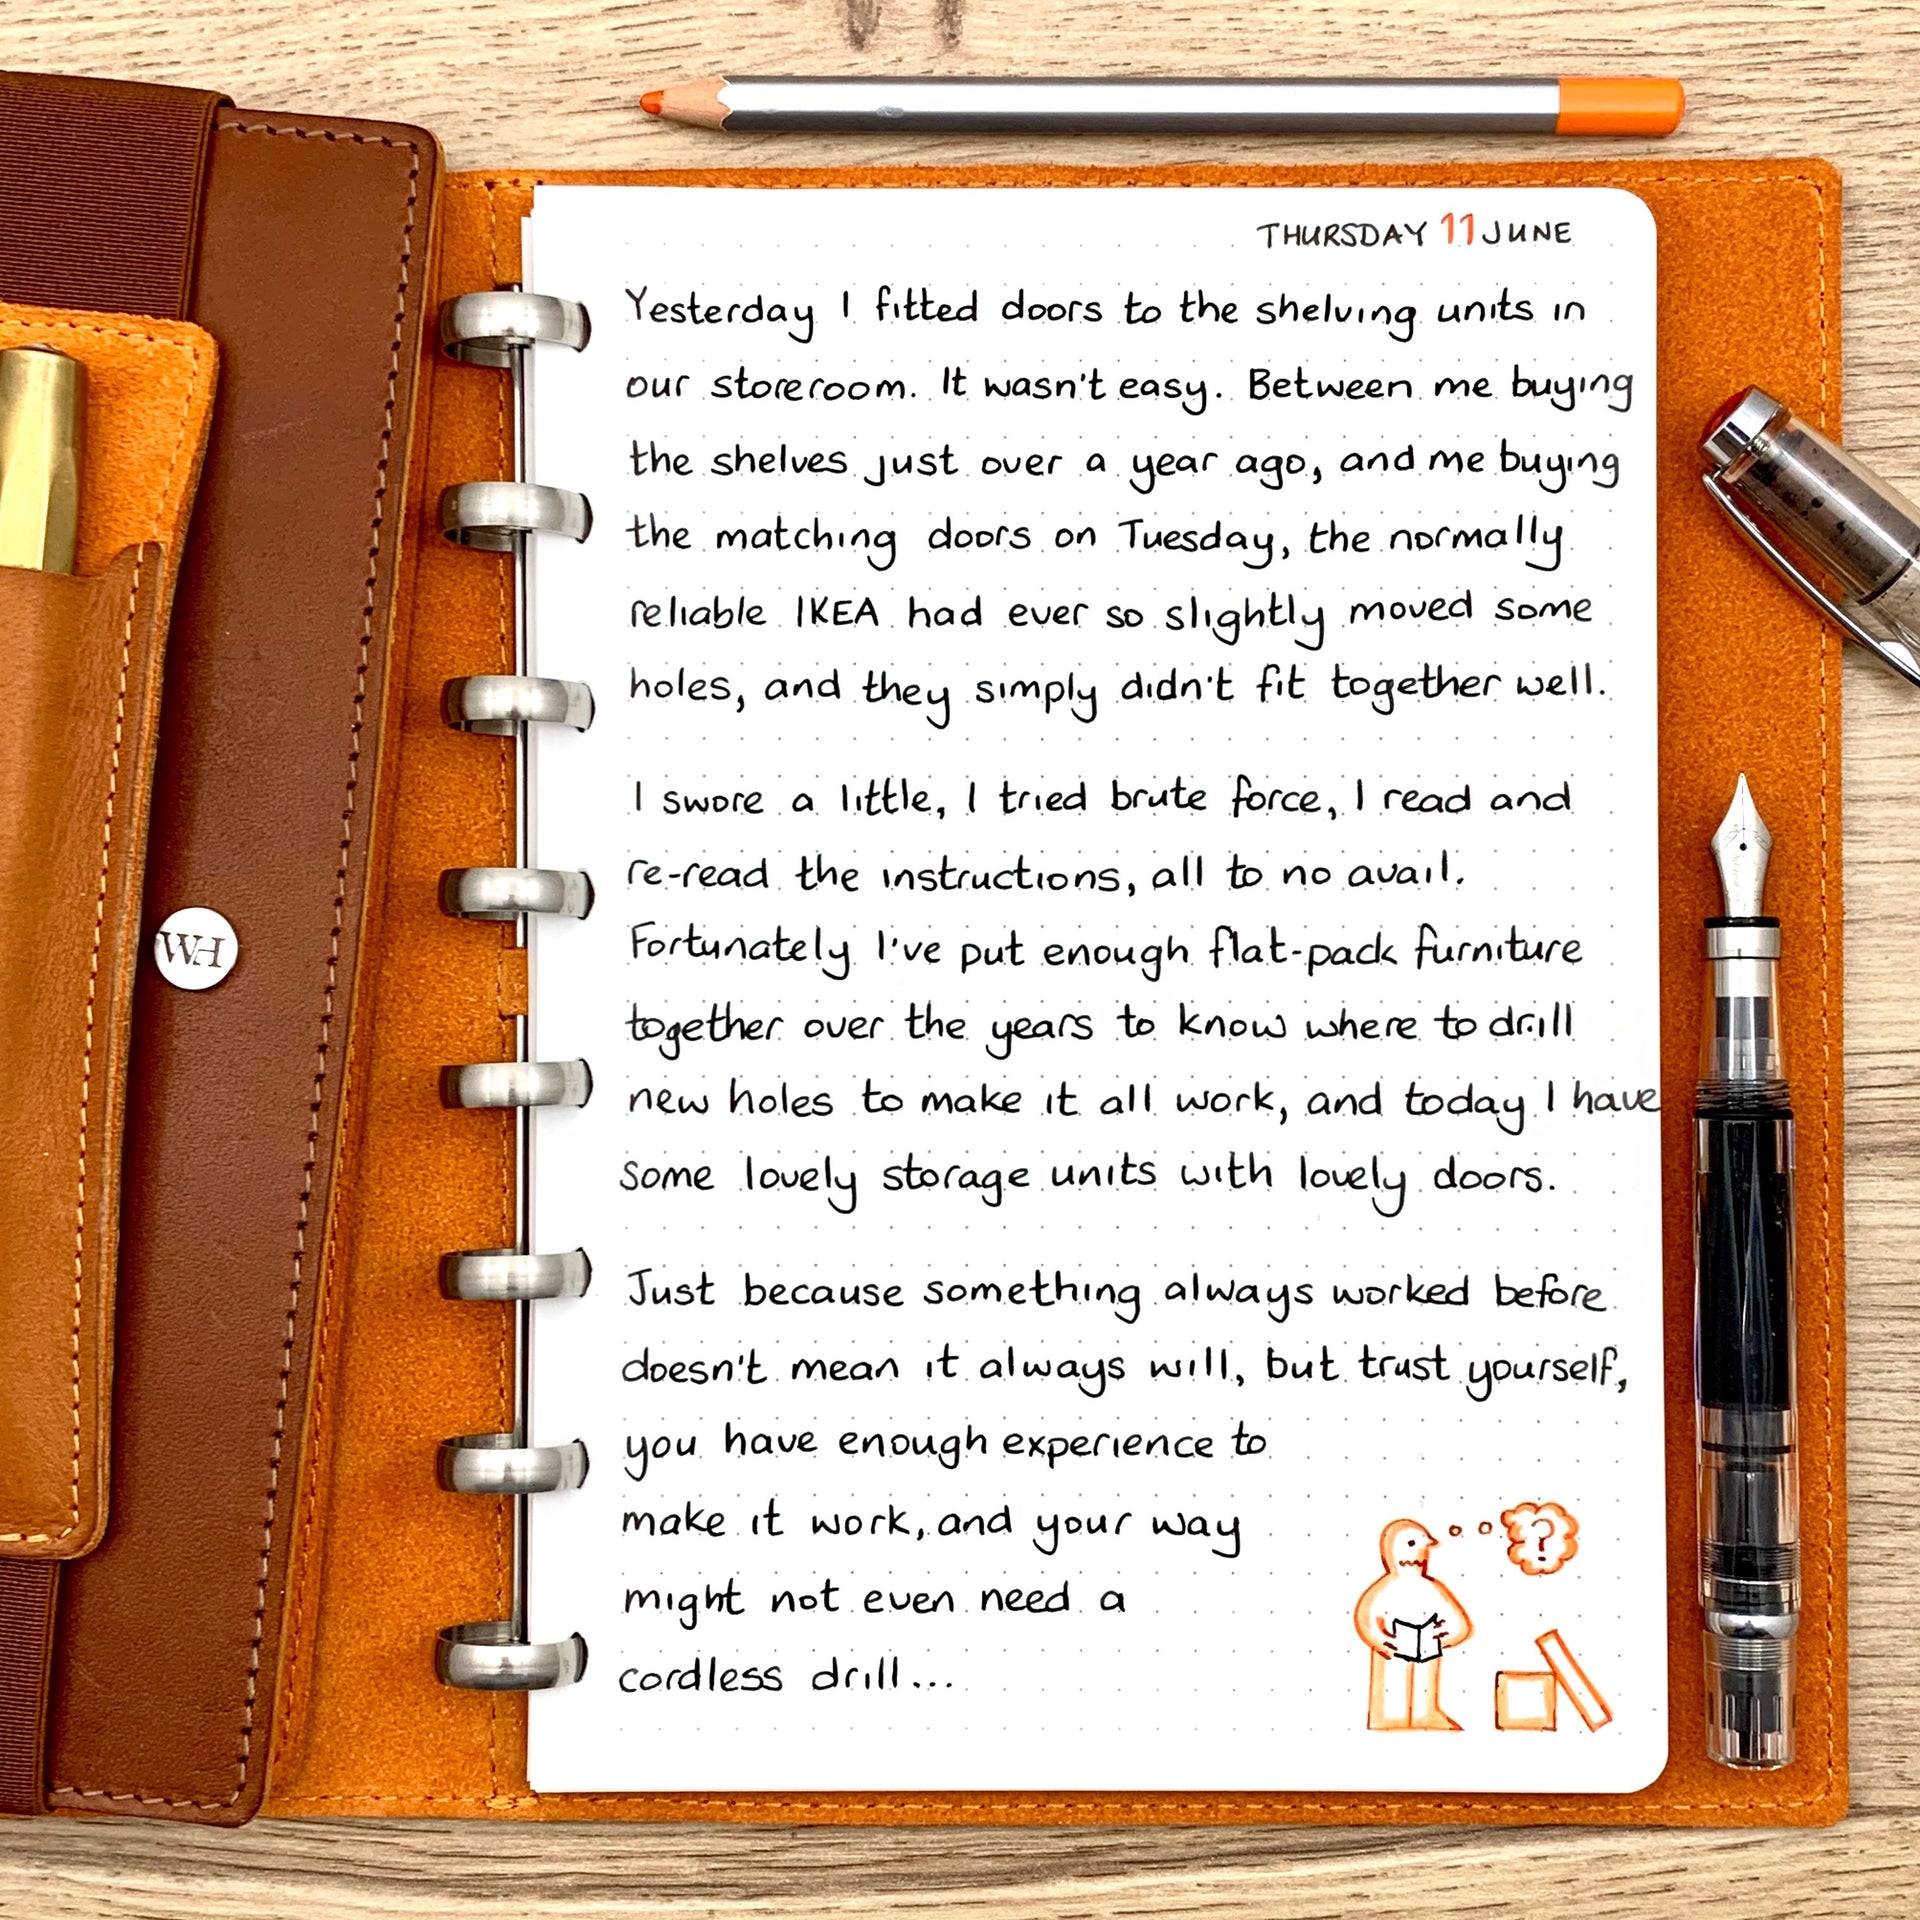 THURSDAY 11 JUNE
Yesterday I fitted doors to the shelving units in
our storeroom. It wasn't easy. Between me buying
the shelves just over a year ago, and me buying
the matching doors on Tuesday, the normally
reliable IKEA had ever so slightly moved some
holes, and they simply didn't fit together well.
I swore a little, I tried brute force, I read and
re-read the instructions, all to no avail.
Fortunately I've put enough flat-pack furniture
together over the years to know where to drill
new holes to make it all work, and today I have
some lovely storage units with lovely doors.
Just because something always worked before
doesn't mean it always will, but trust yourself,
you have enough experience to
make it work, and your way
might not even need a
cordless drill...
?
WH